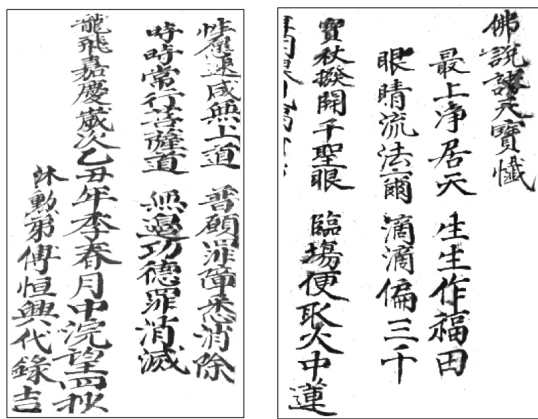 佛說諸天寶懺
最上淨居天 生生作福田
眼睛流法爾 滴滴偏三千
寶秋撥開千聖眼 臨塲便取火中蓮
惟愿速成無上道 普願罪障悉消除
時時常行菩薩道 無邊功德罪消滅
龍飛嘉慶歲次乙丑年季春月中浣望四秋
沐勲弟傅恒興代錄吉